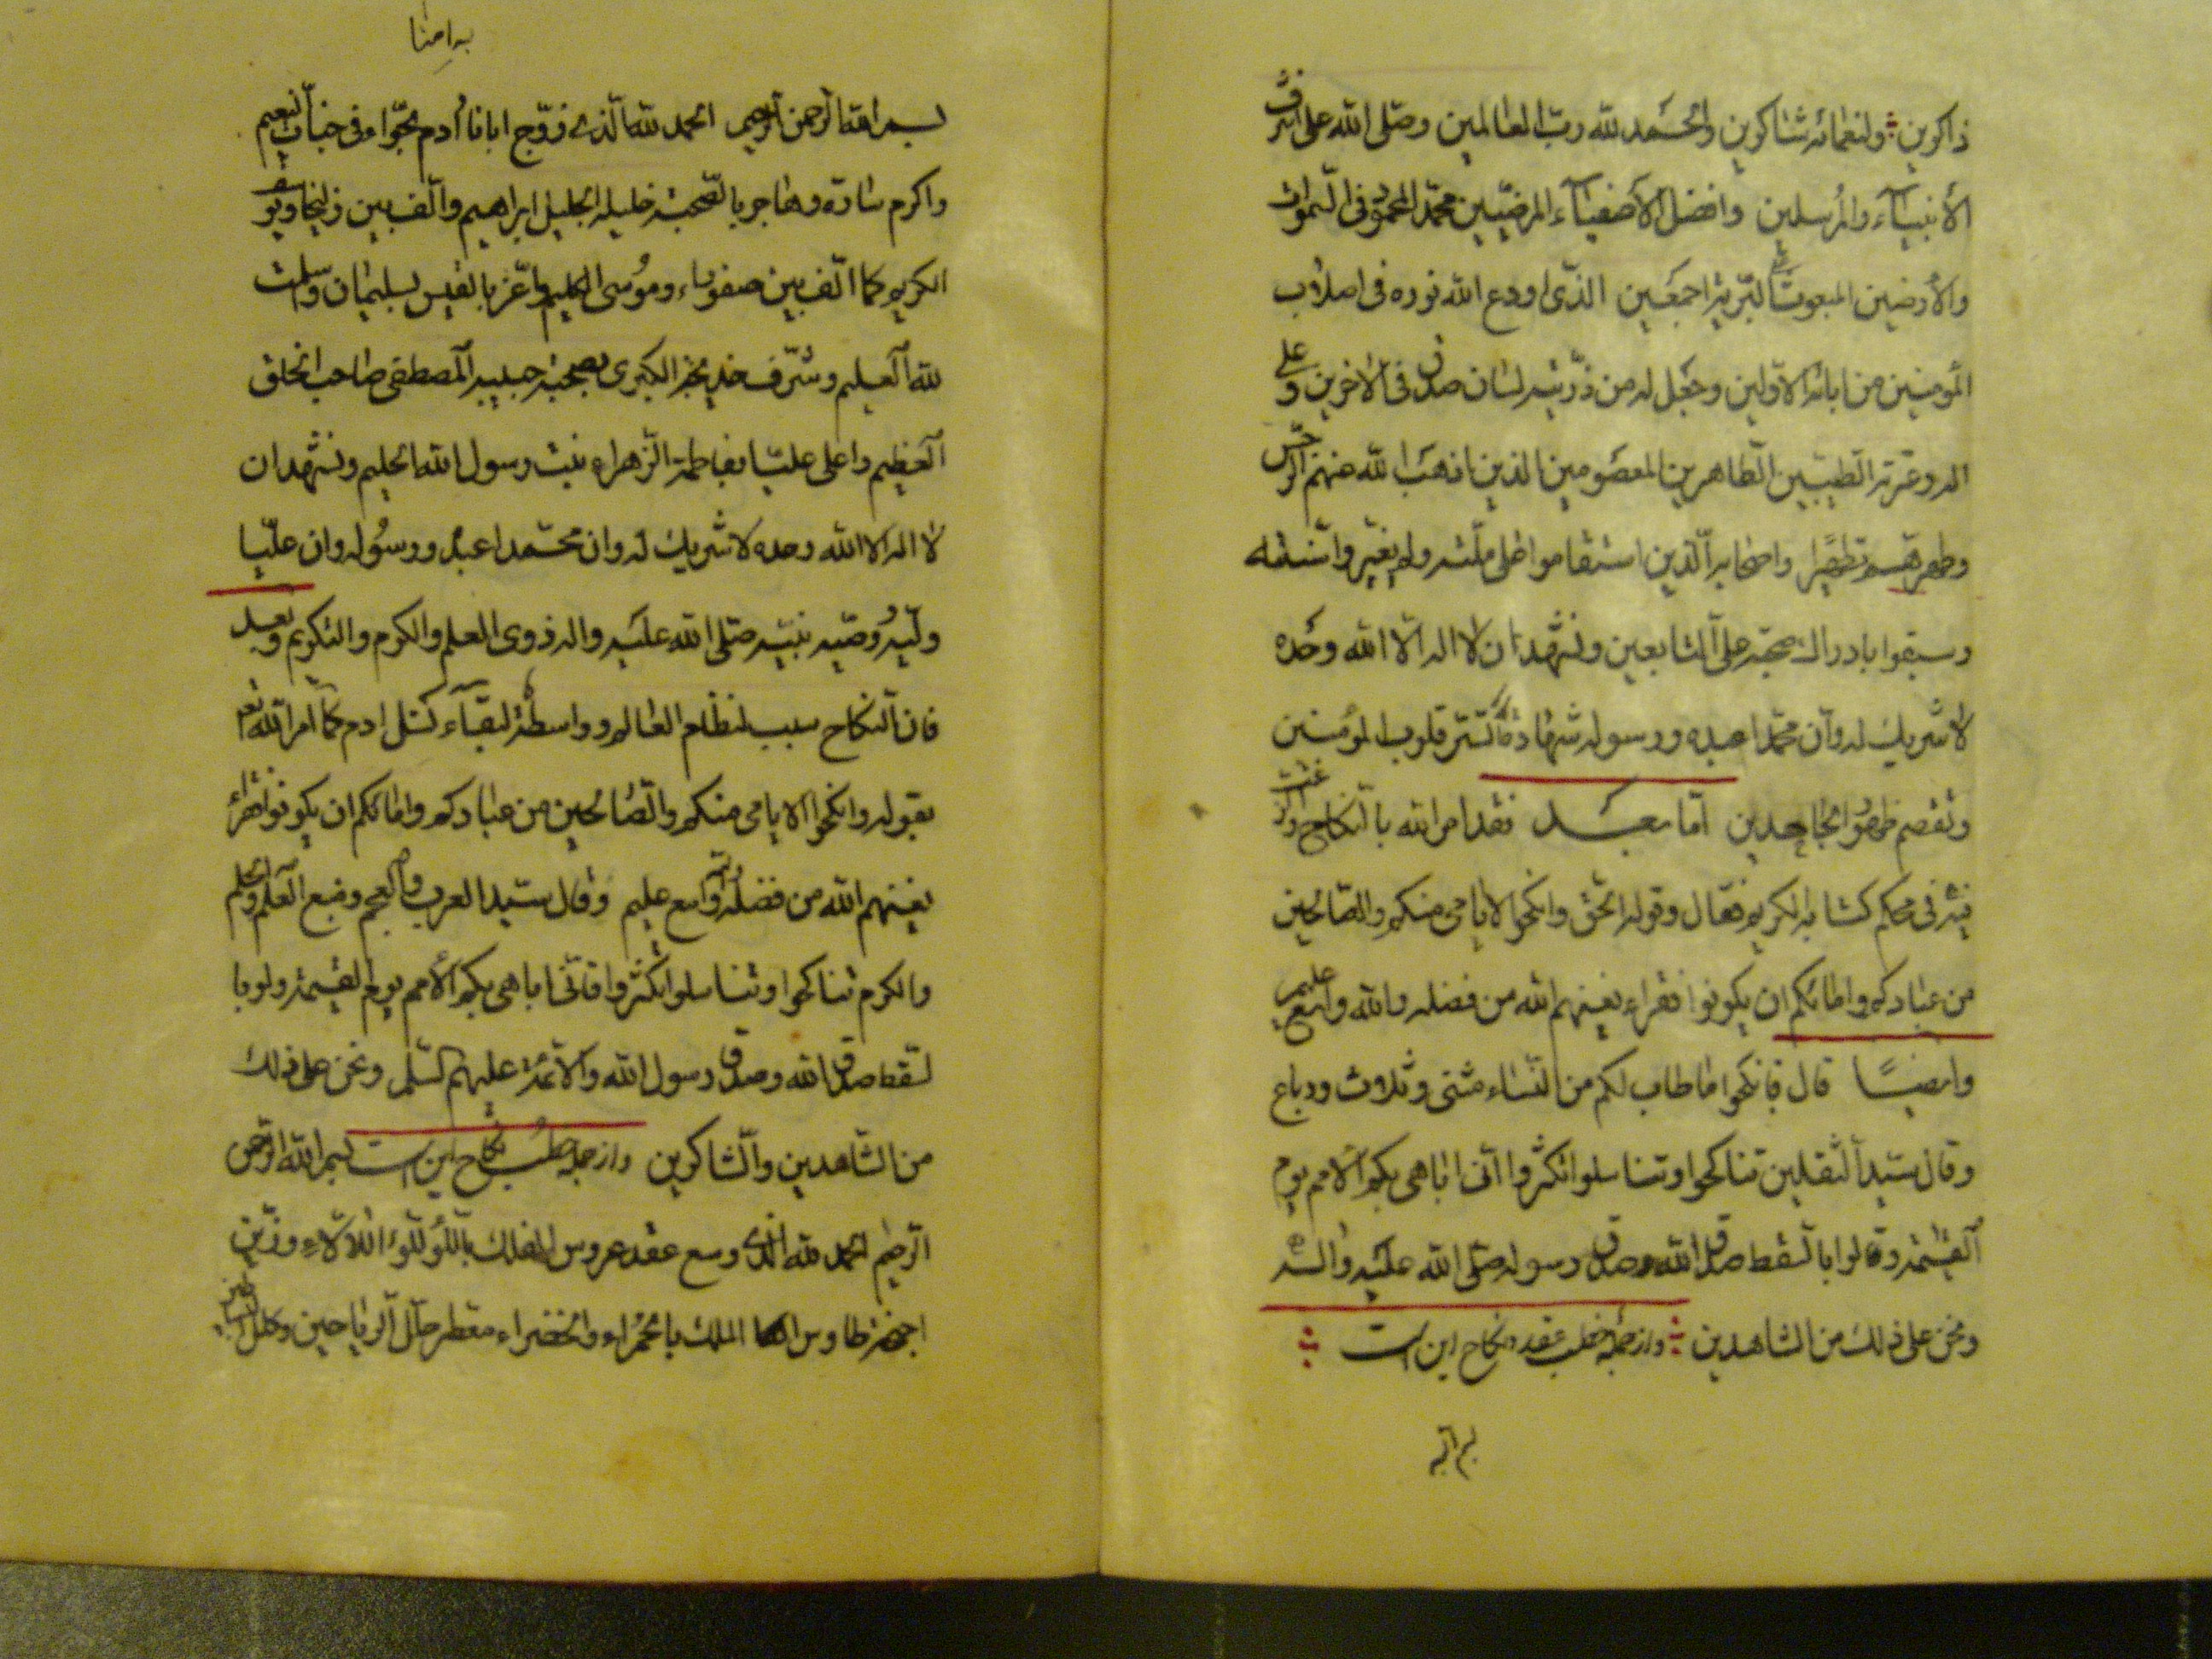 ذاكرين ولنعمائه شاكرين والحمد لله رب العالمين وصلى الله على اشرف
الأنبياء والمرسلين وافضل الأصفياء المرضيين محمد المحمود فى السموات
والأرضين المبعوث البرية اجمعين الذى اودع الله نوره فى اصلاب
المؤمنين من ابائه الاولين وجعل له من ذريته لسان صدق فى الاخرين وعلى
اله وعترته الطيبين الطاهرين المعصومين الذين اذهب الله عنهم الرجس
وطهرهم تطهيرا واصحابه الذين استقاموا على ملته ولم يغيروا سنته
وسبقوا بادراك صحبته على التابعين ونشهد ان لا اله الا الله وحده
لا شريك له وان محمدا عبده ورسوله شهادة تستر قلوب المؤمنين
وتقصم ظهور الجاحدين اما بعد فقد امر الله بالنكاح
فى محكم كتابه الكريم فقال وقوله الحق وانكحوا الايامى منكم والصالحين
من عبادكم وامائكم ان يكونوا فقراء يغنهم الله من فضله والله واسع عليم
وايضا قال فانكحوا ما طاب لكم من النساء مثنى وثلاث ورباع
وقال سيد الثقلين تناكحوا وتناسلوا تكثروا انى اباهى بكم الامم يوم
القيمة ولو بالسقط صدق الله وصدق رسوله صلى الله عليه واله
ونحن على ذلك من الشاهدين وازجمله خطب عقد نكاح اين است
بسم الله
به امتنا
بسم الله الرحمن الرحيم الحمد لله الذى زوج ابانا ادم بحواء فى جنات النعيم
واكرم سارة وهاجر بالصحبة خليله الجليل ابراهيم والف بين زليخا ويوسف
الكريم كما الف بين صفوراء وموسى الكليم واعز بلقيس بسليمان واسلمت
لله العليم وشرف خديجة الكبرى بصحبة حبيبه المصطفى صاحب الخلق
العظيم واعلى عليا بفاطمة الزهراء بنت رسول الله الحليم ونشهد ان
لا اله الا الله وحده لا شريك له وان محمدا عبده ورسوله وان عليا
وليه ووصيه نبيه صلى الله عليه واله ذوى العلم والكرم والتكريم وبعد
فان النكاح سبب لنظام العالم وواسطة لبقاء نسل ادم كما امر الله تعالى
بقوله وانكحوا الايامى منكم والصالحين من عبادكم وامائكم ان يكونوا فقراء
يغنهم الله من فضله والله واسع عليم وقال سيد العرب والعجم ومنبع العلم والحلم
والكرم تناكحوا وتناسلوا تكثروا فانى اباهى بكم الأمم يوم القيمة ولو با
لسقط صدق الله وصدق رسول الله والأئمة عليهم السلم ونحن على ذلك
من الشاهدين والشاكرين وازجمله خطب نكاح اين است بسم الله الرحمن
الرحيم الحمد لله الذى وسع عقد عروس الفلك باللؤلؤ اللألاء وزين
اجنحة طاوس الملك بالحمراء والخضراء معطر حلل الرياحين وكلل